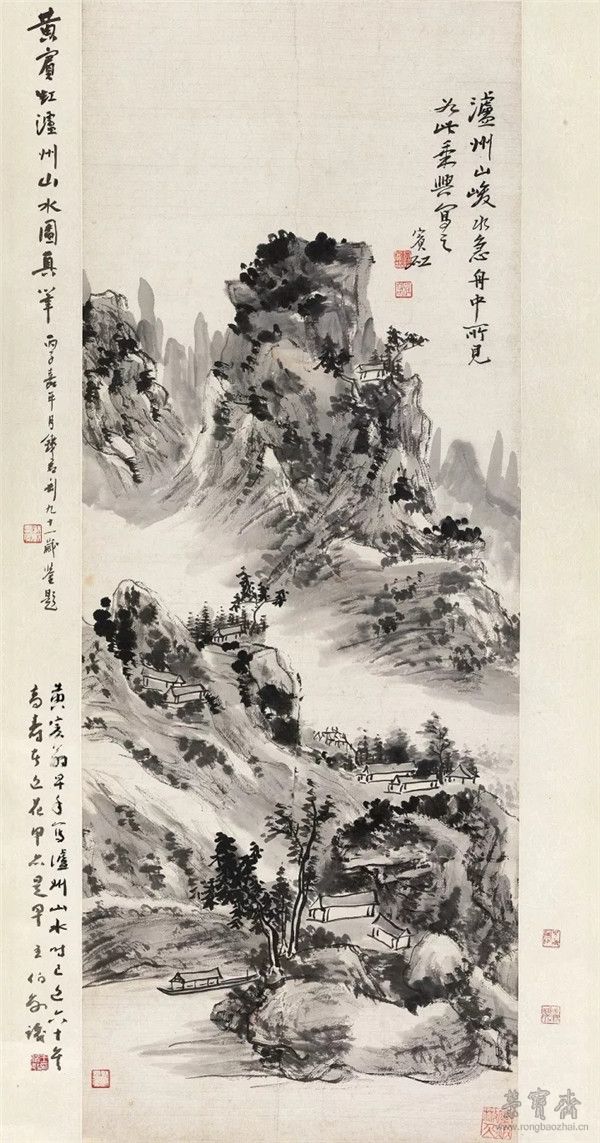 瀘州山峻水急舟中所見
如此乘興寫之
賓虹
黃賓虹瀘州山水圖真筆
丙子嘉平月錢君匋九十一歲鑒題
黃賓翁早年寫瀘州山水時已近六十矣
高壽者近花甲亦是早 王伯敏識
榮寶齋
www.rongbaozhai.cn